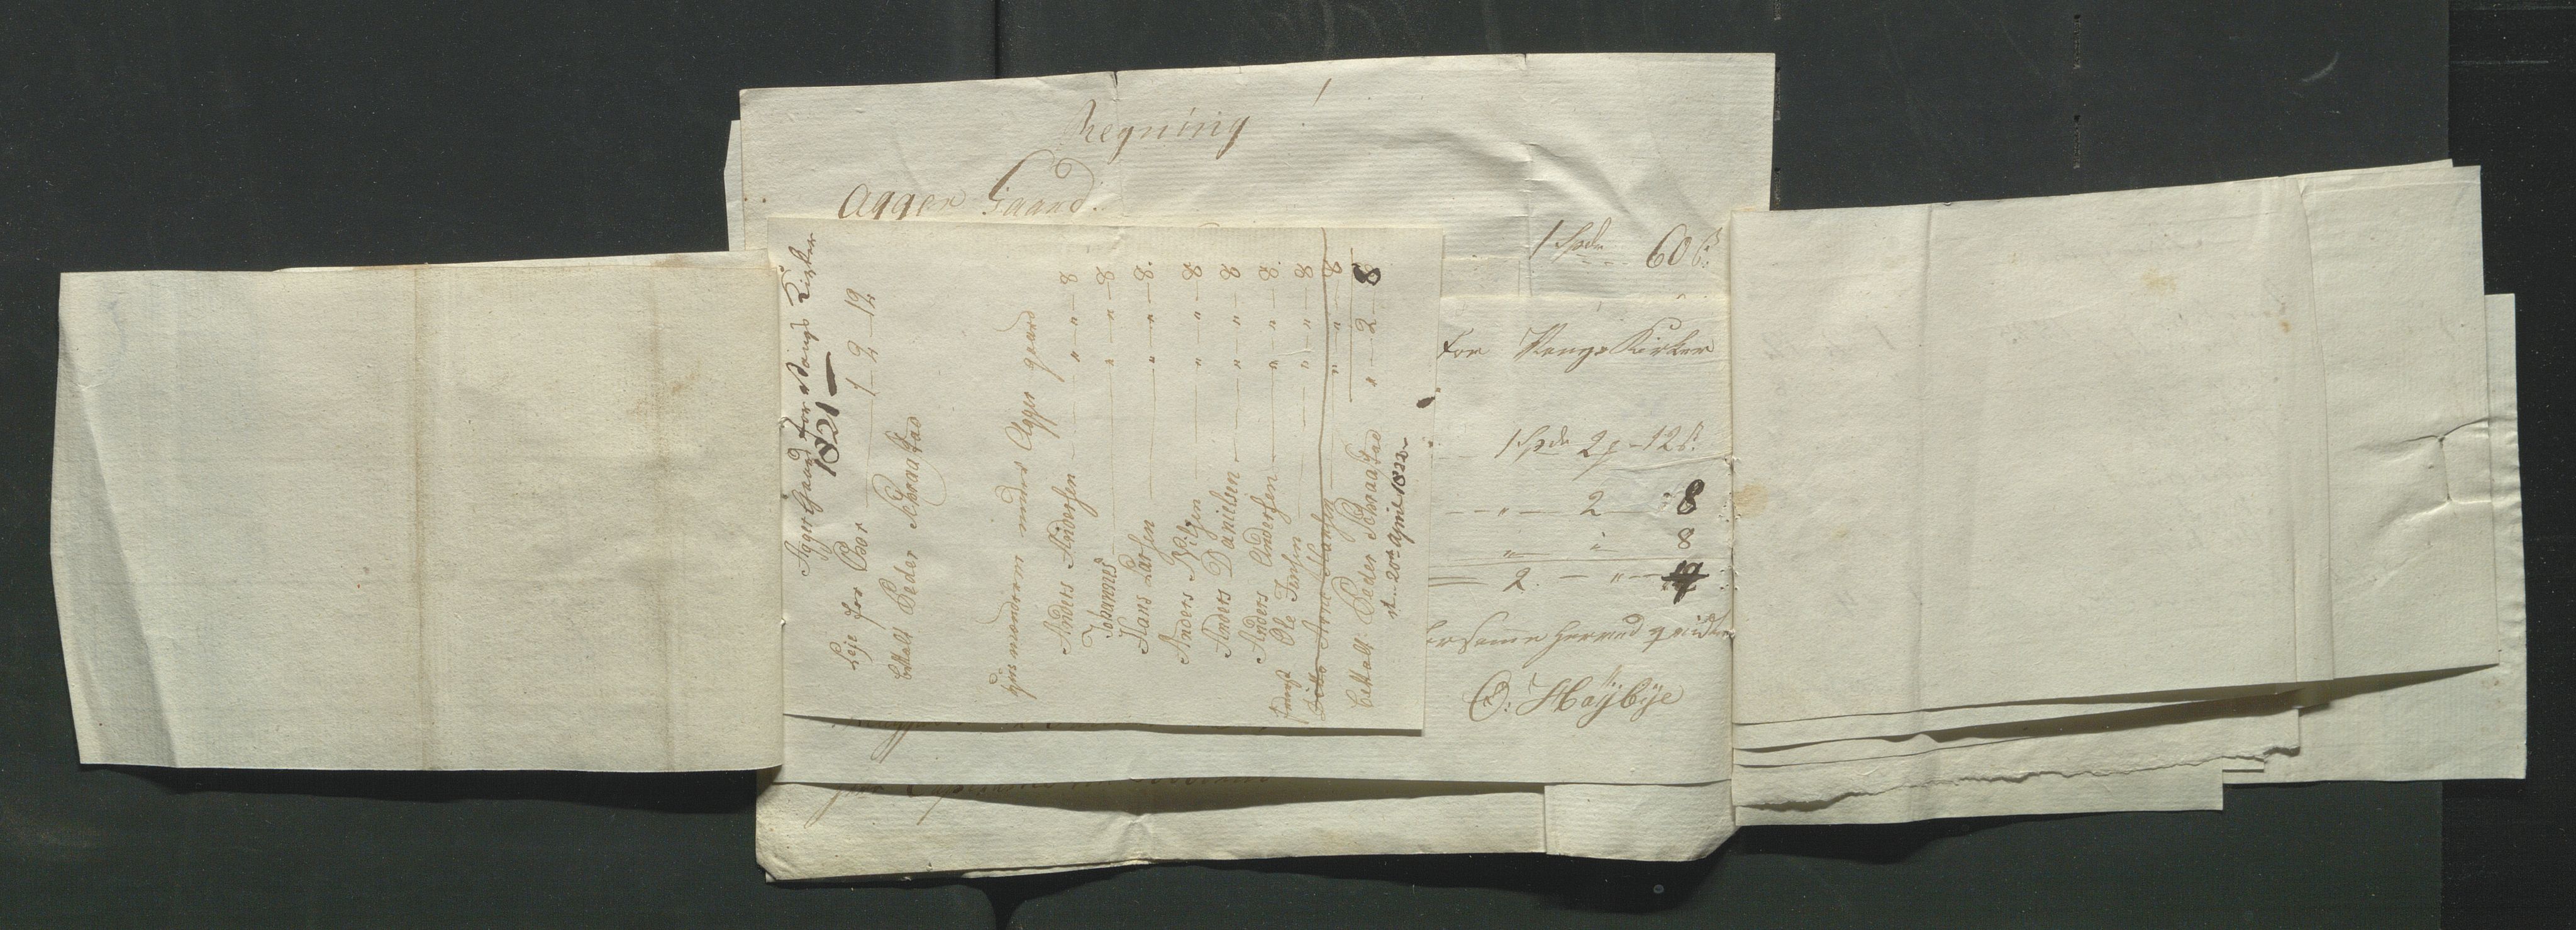 Regning
Agger Gaard.
1 Spdr 60 ß
for Vangs Kirker
1 Spdr 2 - 12 ß
" 2 8
" " 8
2. - "
hermed
O: Høÿbÿe
Agger Gaard for Vangs Kirker
1821
Leje for Bor 1 - 2 - 12
bettalt Peder Schraastad
Husmændrern under Agger gaard
Anders Andersen " - " - 8
Johannes " - " - 8
Hans Larsen " - " - 8
Anders Nilsen " - " - 8
Anders Danielsen " - " - 8
Anders Andersen " - " - 8
Ole Jensen " - " - 8
Dito Arne Hansen " - " - 8
bettalt Peder Schraastad " - 2 - 8
d. 20de April 1822